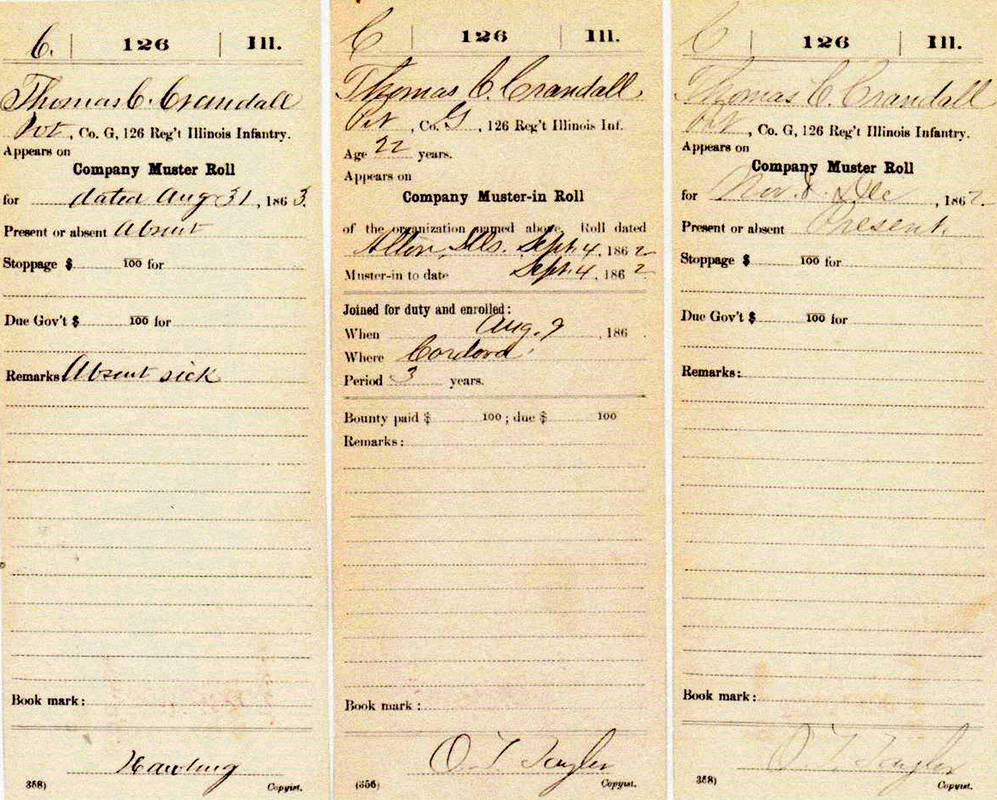 C. | 126 | Ill.
Thomas C. Crandall
Pvt, Co. G, 126 Reg't Illinois Infantry.
Appears on
Company Muster Roll
for dated Aug 31, 1863.
Present or absent Absent
Stoppage $ 100 for
Due Gov't $ 100 for
Remarks Absent sick
Book mark:
Copyist.
358)
C | 126 | Ill.
Thomas C. Crandall
Pvt, Co. G, 126 Reg't Illinois Inf.
Age 22 years.
Appears on
Company Muster-in Roll
of the organization named above. Roll dated
Alton, Ills. Sept. 4, 1862
Muster-in to date Sept. 4, 1862.
Joined for duty and enrolled:
When Aug. 9, 186 .
Where Cordova
Period 3 years.
Bounty paid $ 100; due $ 100
Remarks:
Book mark:
O. T. Taylor
(356) Copyist.
C | 126 | Ill.
Thomas C. Crandall
Pvt, Co. G, 126 Reg't Illinois Infantry.
Appears on
Company Muster Roll
for Nov. & Dec, 1862.
Present or absent Present.
Stoppage $ 100 for
Due Gov't $ 100 for
Remarks:
Book mark:
O. T. Taylor
358) Copyist.